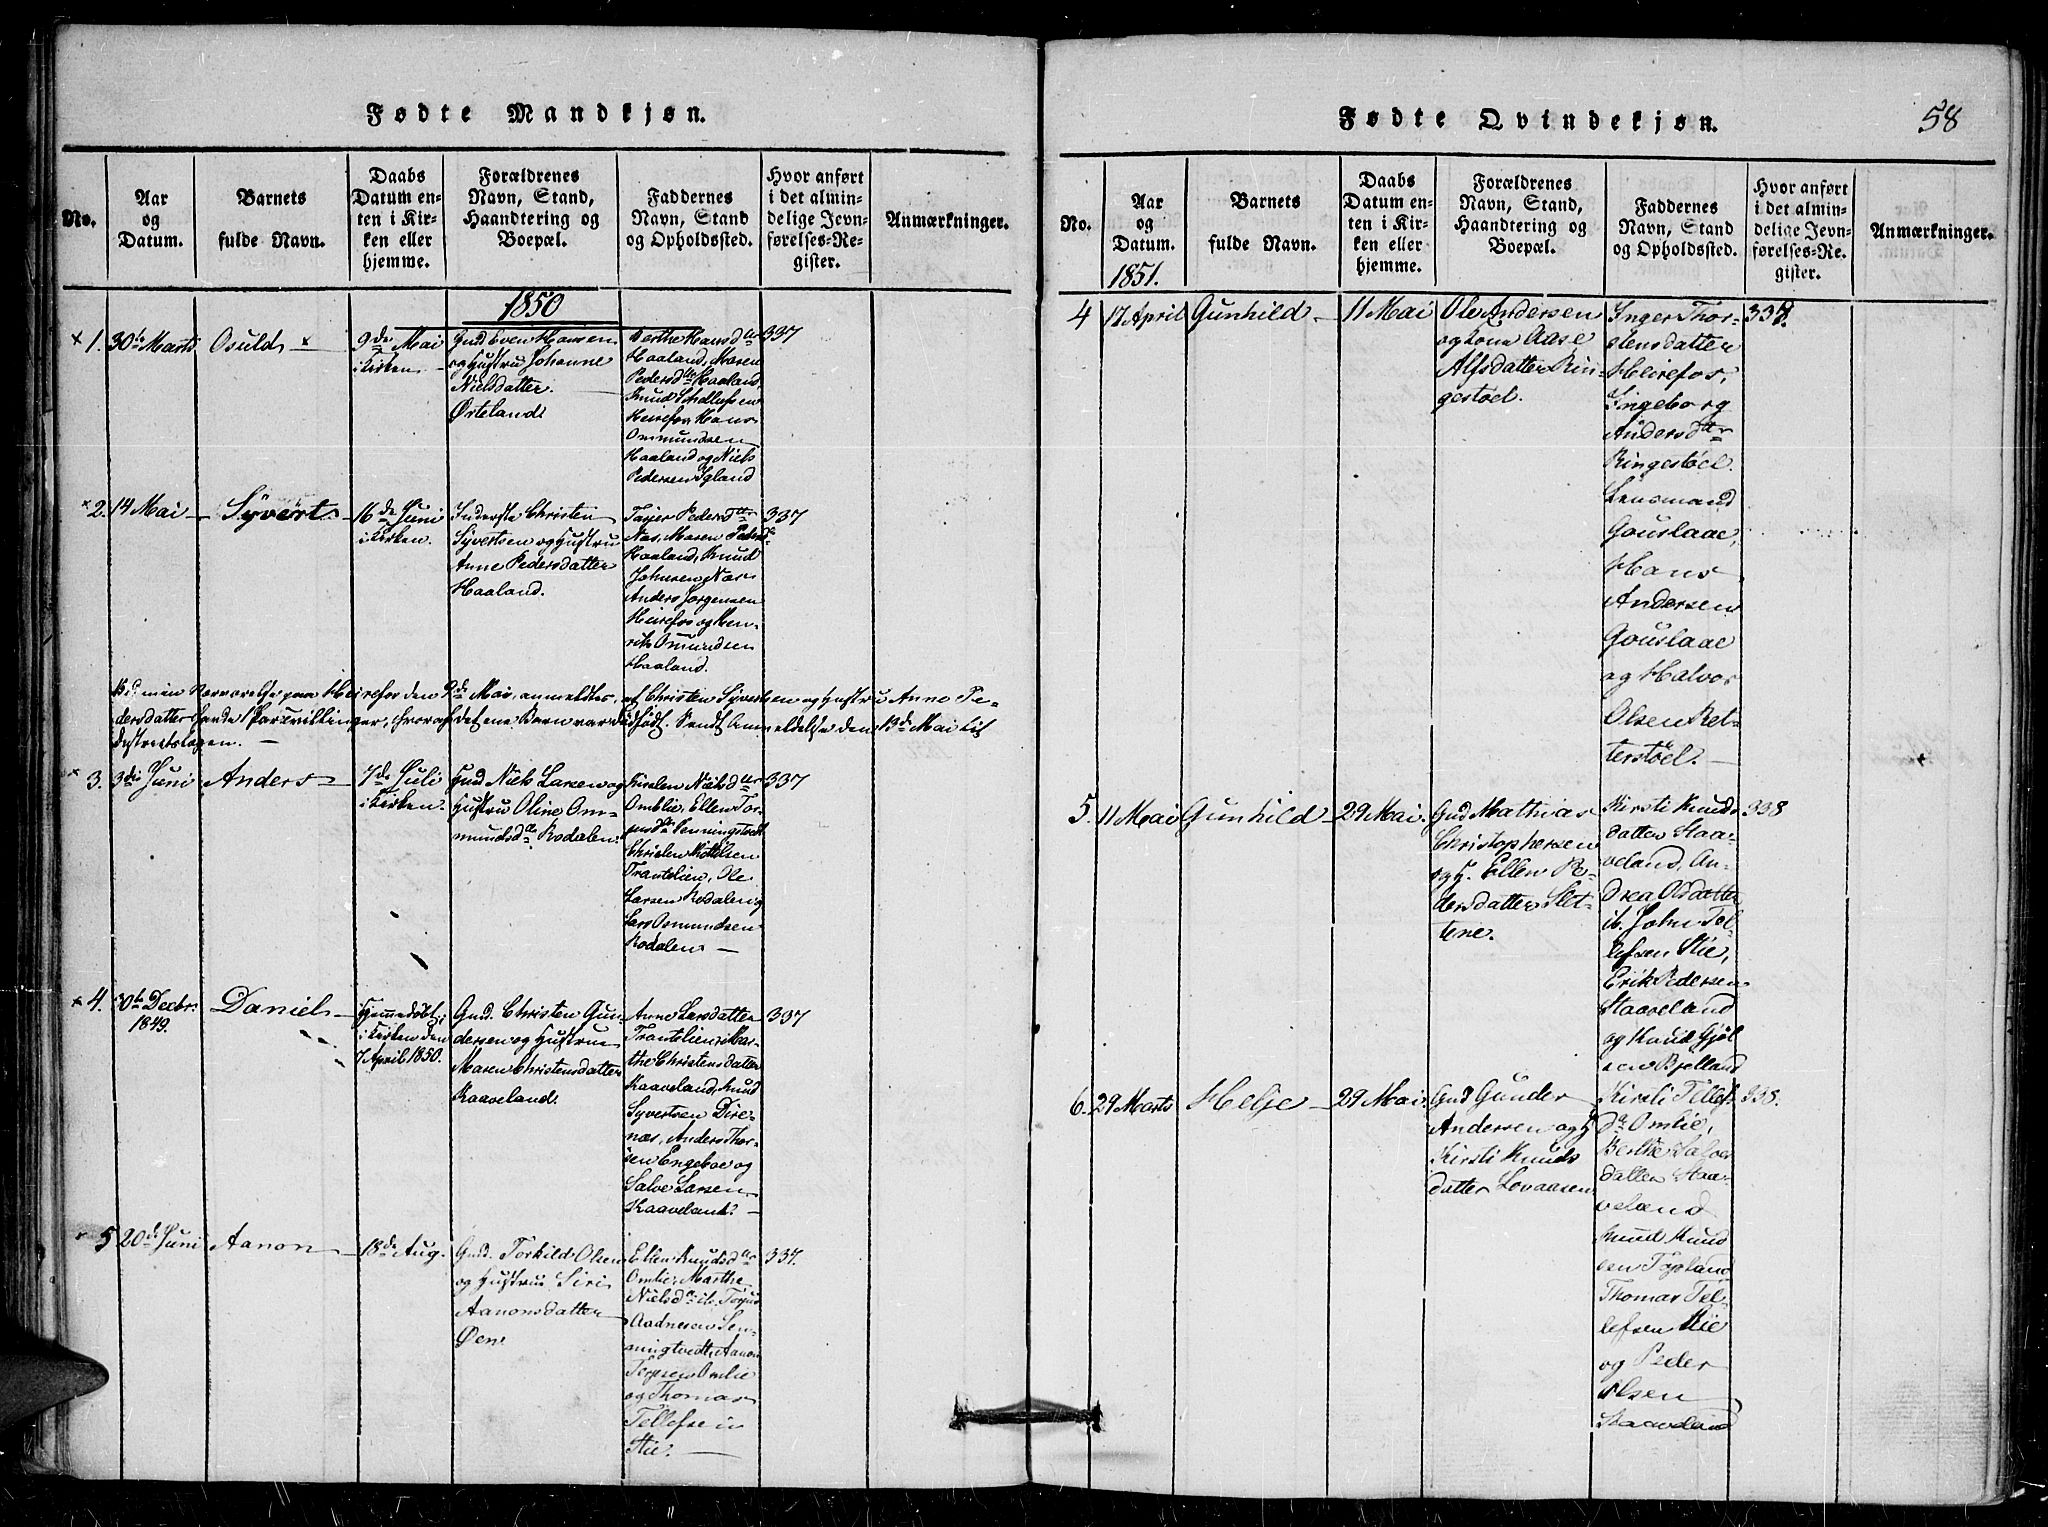 Fødte Mandkjøn.
No.
Aar
og
Datum.
Barnets
fulde Navn.
Daabs
Datum en-
ten i Kir-
ken eller
hjemme.
Forældrenes
Navn, Stand,
Haandtering og
Boepæl.
Faddernes
Navn, Stand
og Opholdssted.
Hvor anført
i det almin-
delige Jevn-
førelses-Re-
gister.
Anmærkninger.
1850
1.
30te Marts
Osuld
9de Mai
i Kirken
Gmd Even Hansen
og Hustru Johanne
Nielsdatter
Østeland
Berthe Hansdtter
Haaland, Maren
Pedersdtr Haaland,
Knud
Heirefos Hans
Ommundsen
Haaland og Niels
Pedersen Igland
337
2.
14 Mai
Syvert
16de Juni
i Kirken.
Inderste Christen
Syvertsen og Hustru
Anne Pedersdatter
Haaland.
Pedersdtter
Næs, Maren Pedersdtr
Haaland, Knud
Johnsen Næs
Anders Jørgensen
Heirefos og Hen-
rik Omundsen
Haaland.
337
Ved min Nærværelse paa Heirefos den 9de Mai, anmeldtes, at Christen Syvertsen og Hustru Anne Pe-
dersdatter havde 1 Par Tvillinger, hvoraf det ene Barn var dødfødt. Sendt Anmeldelse den 13de Mai til
3.
3die Juni
Anders
7de Juli
i Kirken.
Gmd Niels Larsen og
Hustru Oline Om-
mundsdtr Rodalen.
Nielsdtter
Omlie, Ellen Tor-
Christen
Trantelien, Ole
Larsen Rodalen og
Lars Osmundsen
Rodalen
337
4.
30te Decbr.
1849.
Daniel
Hjemmedøbt,
i Kirken den
7 April 1850.
Gmd. Christen Gun-
dersen og Hustru
Maren Christensdatter
Raaveland.
Anne Larsdatter
Trantelien, Mar-
the Christensdatter
Raaveland, Knud
Syvertsen Dire-
næs, Anders Thor-
sen Engeboe og
Salve Larsen
Raaveland.
337
5
20de Juni
Aanon
18de Aug.
Gmd. Torkild Olsen
og Hustru Siri
Aanonsdatter
Øen
Ellen Knudsdtter
Omlie, Marthe
Nielsdtr ib. Torjus
Aadnesen Sen-
ningtvedt, Aanon
Terjesen Omlie
og Thomas
Tellefsen
Stie.
337.
Fødte Qvindekjøn.
58
No.
Aar
og
Datum.
1851.
Barnets
fulde Navn.
Daabs
Datum en-
ten i Kir-
ken eller
hjemme.
Forældrenes
Navn, Stand,
Haandtering og
Boepæl.
Faddernes
Navn, Stand
og Opholdssted.
Hvor anført
i det almin-
delige Jevn-
førelses-Re-
gister.
Anmærkninger.
4
17 April
Gunhild
11 Mai
Ole Andersen
og Kone Aase
Alfsdatter Rin-
gestøel.
Inger Thor-
stensdatter
Heirefos,
Ingeborg
Andersdttr
Ringestøel.
Lensmand
Gouslaae,
Hans
Andersen
Gouslaae
og Halvor
Olsen Ret-
terstøel.
338.
5.
11 Mai
Gunhild
29 Mai.
Gmd Mathias
Christophersen
og H. Ellen Pe-
dersdatter Slet-
tene.
Kirsti Knuds-
datter Staa-
veland, An-
drea Olsdatter
ib. John Tel-
lefsen Stie,
Erik Pedersen
Staaveland
og Knud Gjøl
sen Bjelland
338
6.
29 Marts
Helje
29 Mai.
Gmd Gunder
Andersen og H
Kirsti Knuds
datter Lovaasen
Kirsti Tellef-
dtr Omlie,
Berthe Salves
datter Staa-
veland
Knud Knud
sen Topland
Thomas Tel-
lefsen Stie
og Peder
Olsen
Staaveland
338.